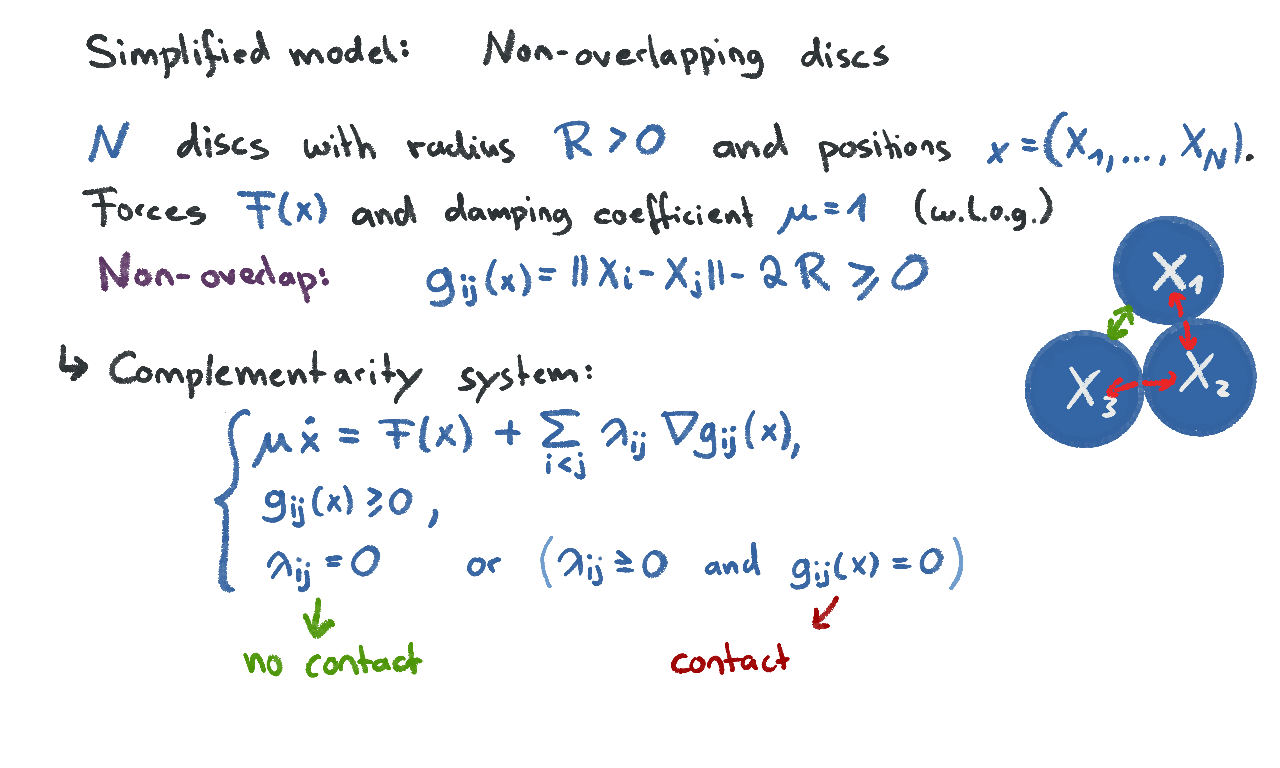 Simplified model: Non-overlapping discs
N discs with radius R > 0 and positions x = (X₁, ..., X_N).
Forces F(x) and damping coefficient μ = 1 (w.l.o.g.)
Non-overlap: g_ij(x) = ||X_i - X_j|| - 2R ≥ 0
X₁
X₃ X₂
↳ Complementarity system:
μẋ = F(x) + Σ_{i<j} λ_ij ∇g_ij(x),
g_ij(x) ≥ 0,
λ_ij = 0 or (λ_ij ≥ 0 and g_ij(x) = 0)
no contact contact